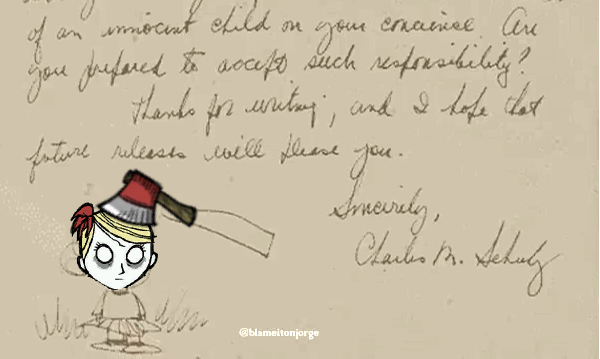 of an innocent child on your conscience. Are
you prepared to accept such responsibility?
Thanks for writing, and I hope that
future releases will please you.
Sincerely,
Charles M. Schulz
@blameitonjorge